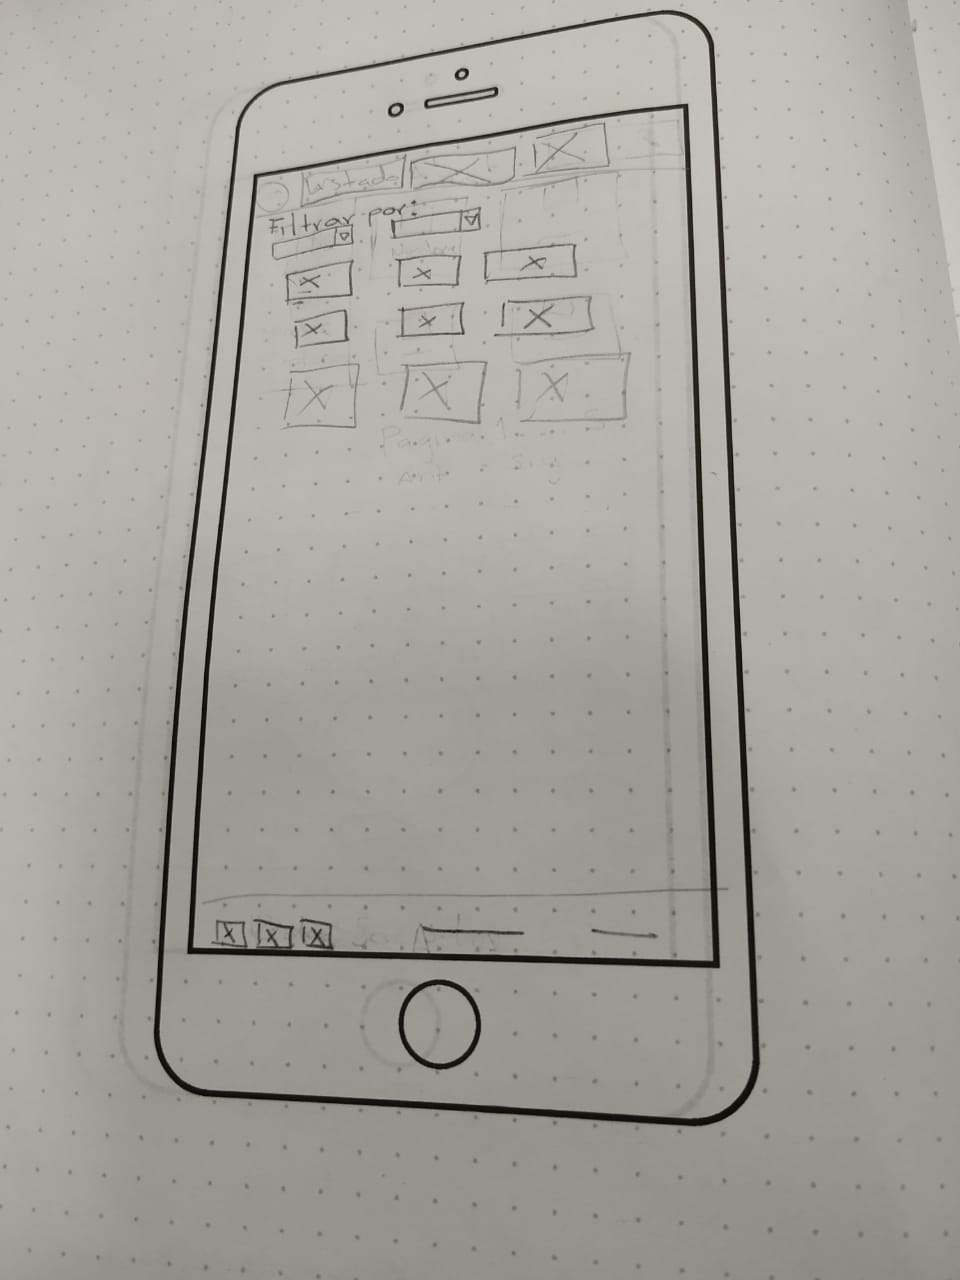 Listado
Filtrar por:
Pagina 1 ..... 5
Ant - Sig